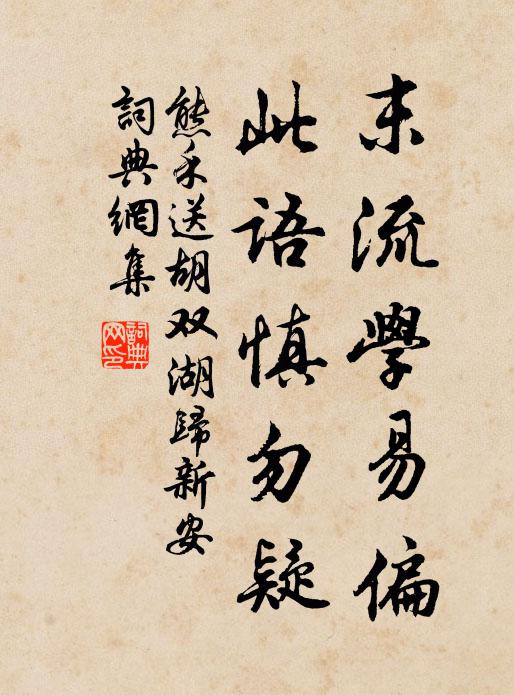 末流學易偏
此語慎勿疑
熊禾送胡双湖歸新安
詞典網集
詞典
网印